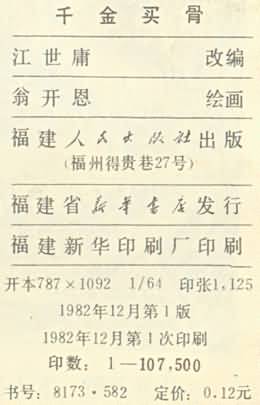 千金买骨
江世庸 改编
翁开恩 绘画
福建人民出版社出版
(福州得贵巷27号)
福建省新华书店发行
福建新华印刷厂印刷
开本787×1092 1/64 印张1,125
1982年12月第1版
1982年12月第1次印刷
印数：1—107,500
书号：8173·582 定价：0.12元